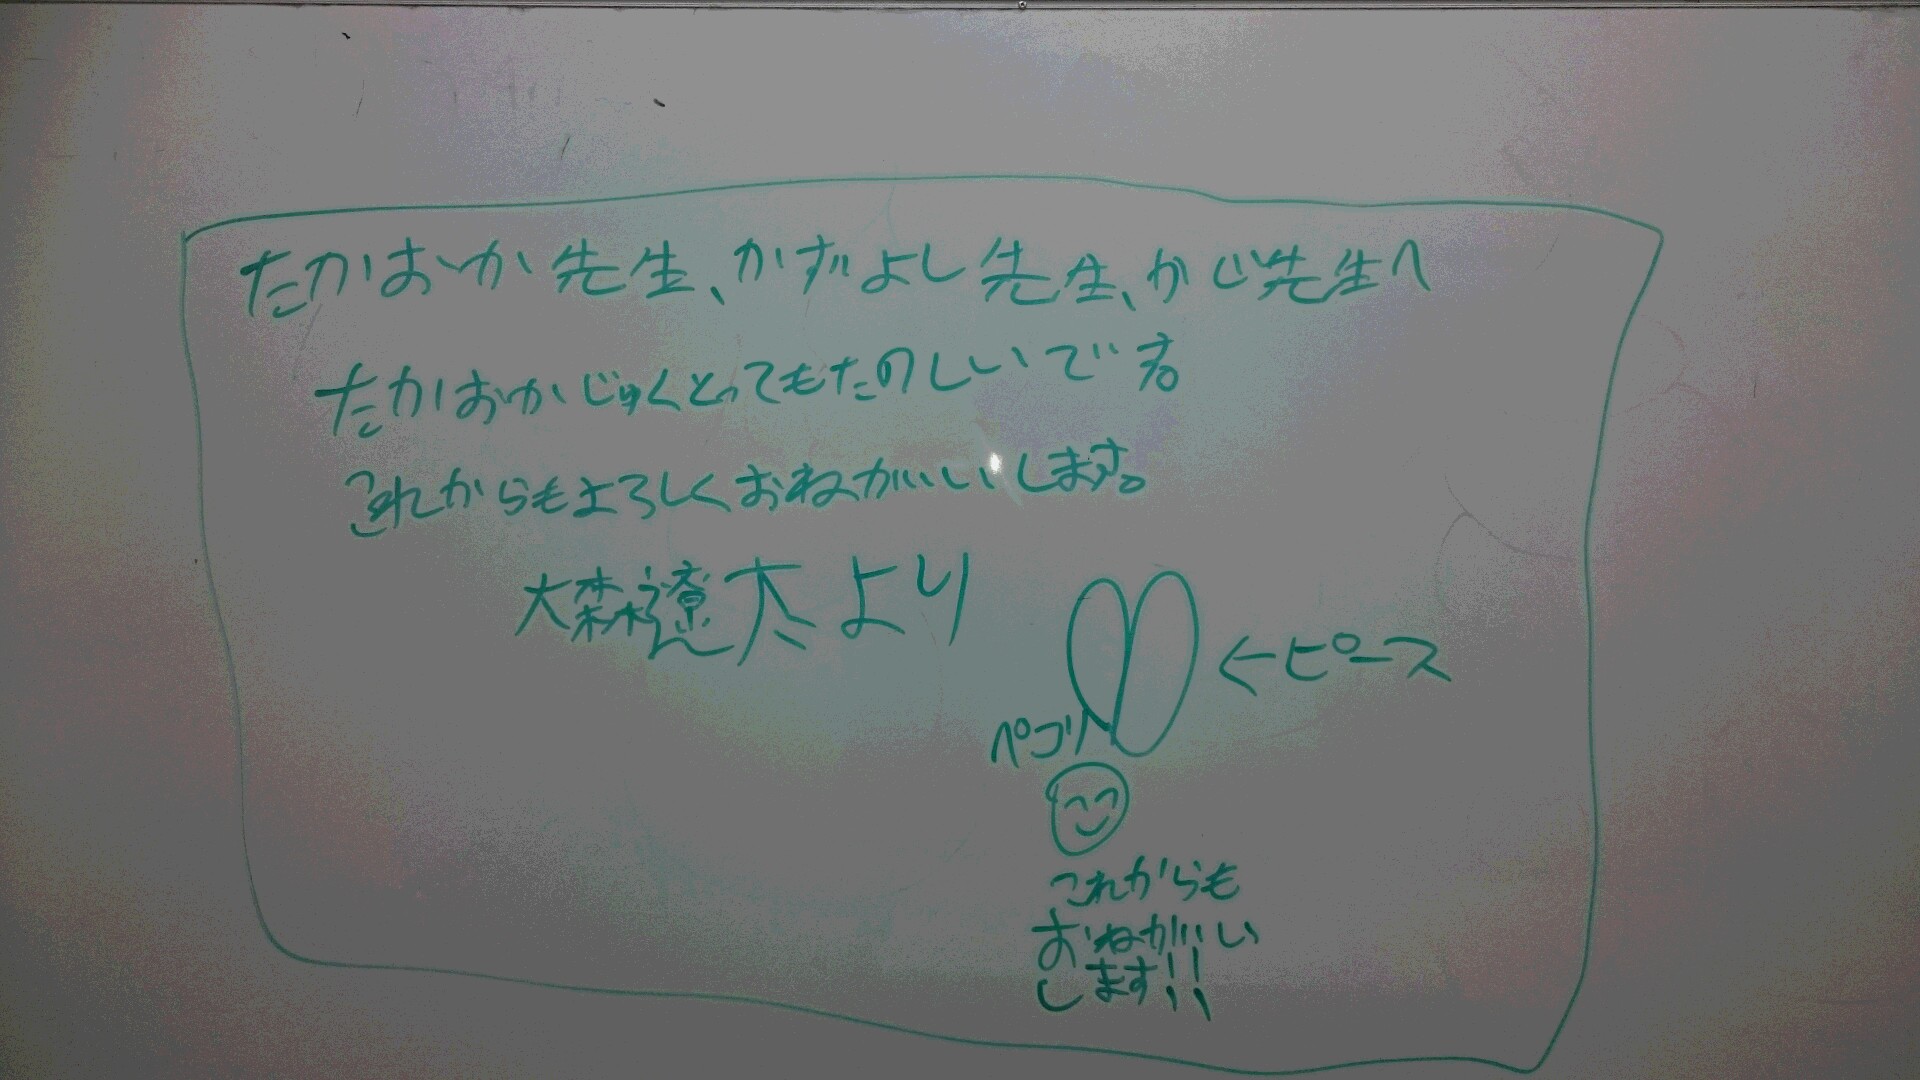 たかおか先生、かずよし先生、かじ先生へ
たかおかじゅくとってもたのしいです。
これからもよろしくおねがいいします。
大森遼太より
←ピース
ペコリ
これからも
おねがいい
します!!